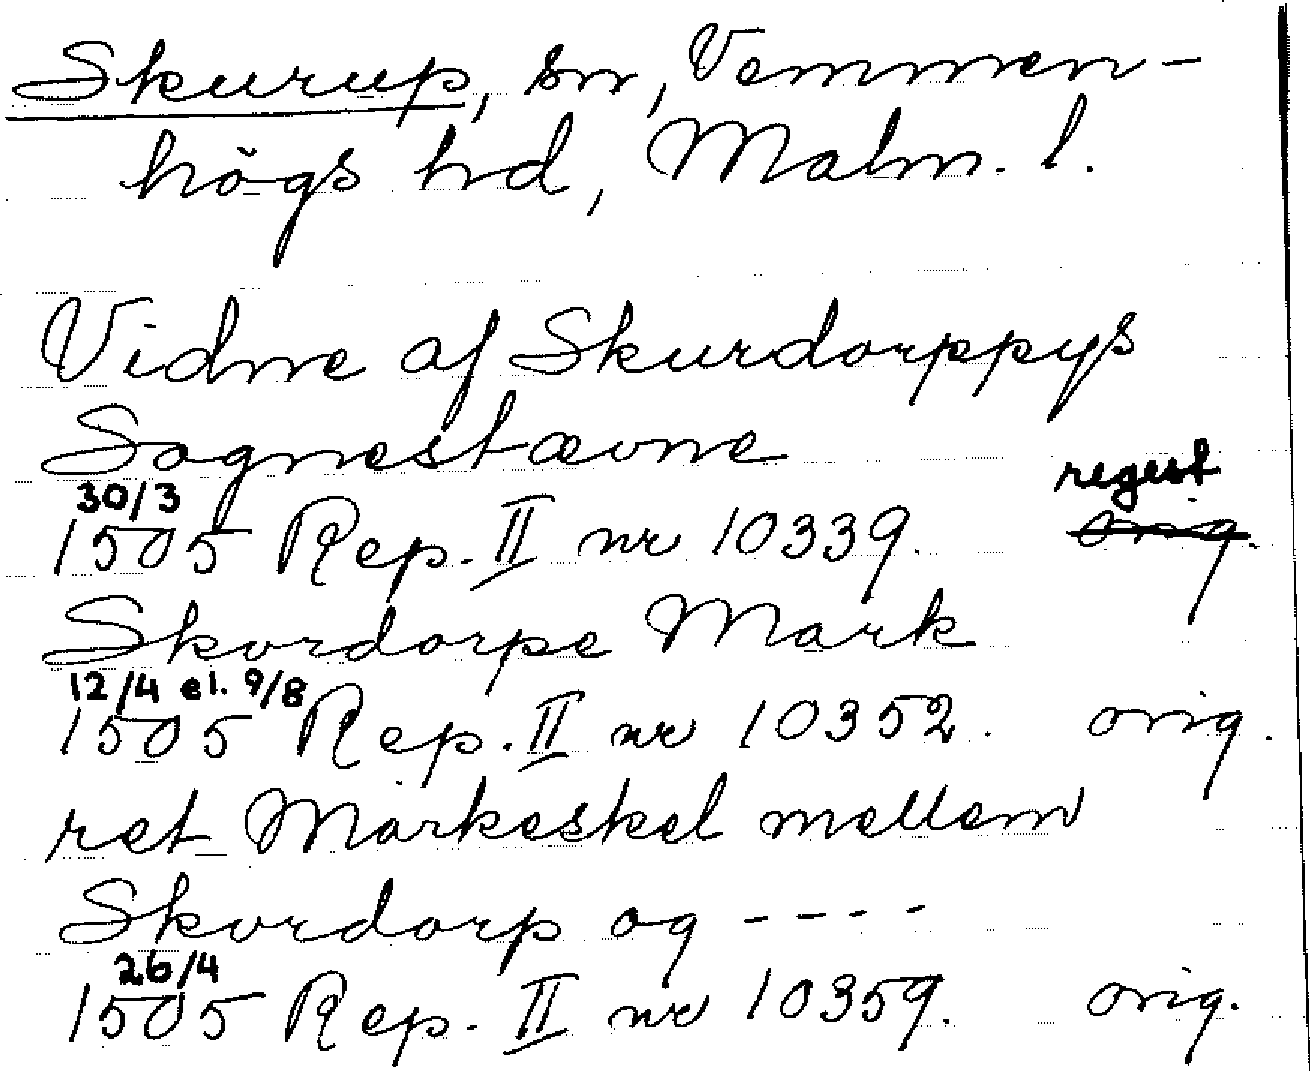 Skurup, sn, Vemmen-
högs hd, Malm. l.
Vidne af Skurdorppys
Sognestævne
30/3 regest
1505 Rep. II nr 10339. orig.
Skordorpe Mark
12/4 el. 9/8
1505 Rep. II nr 10352. orig.
ret Markeskel mellem
Skordorp og ----
26/4
1505 Rep. II nr 10359. orig.